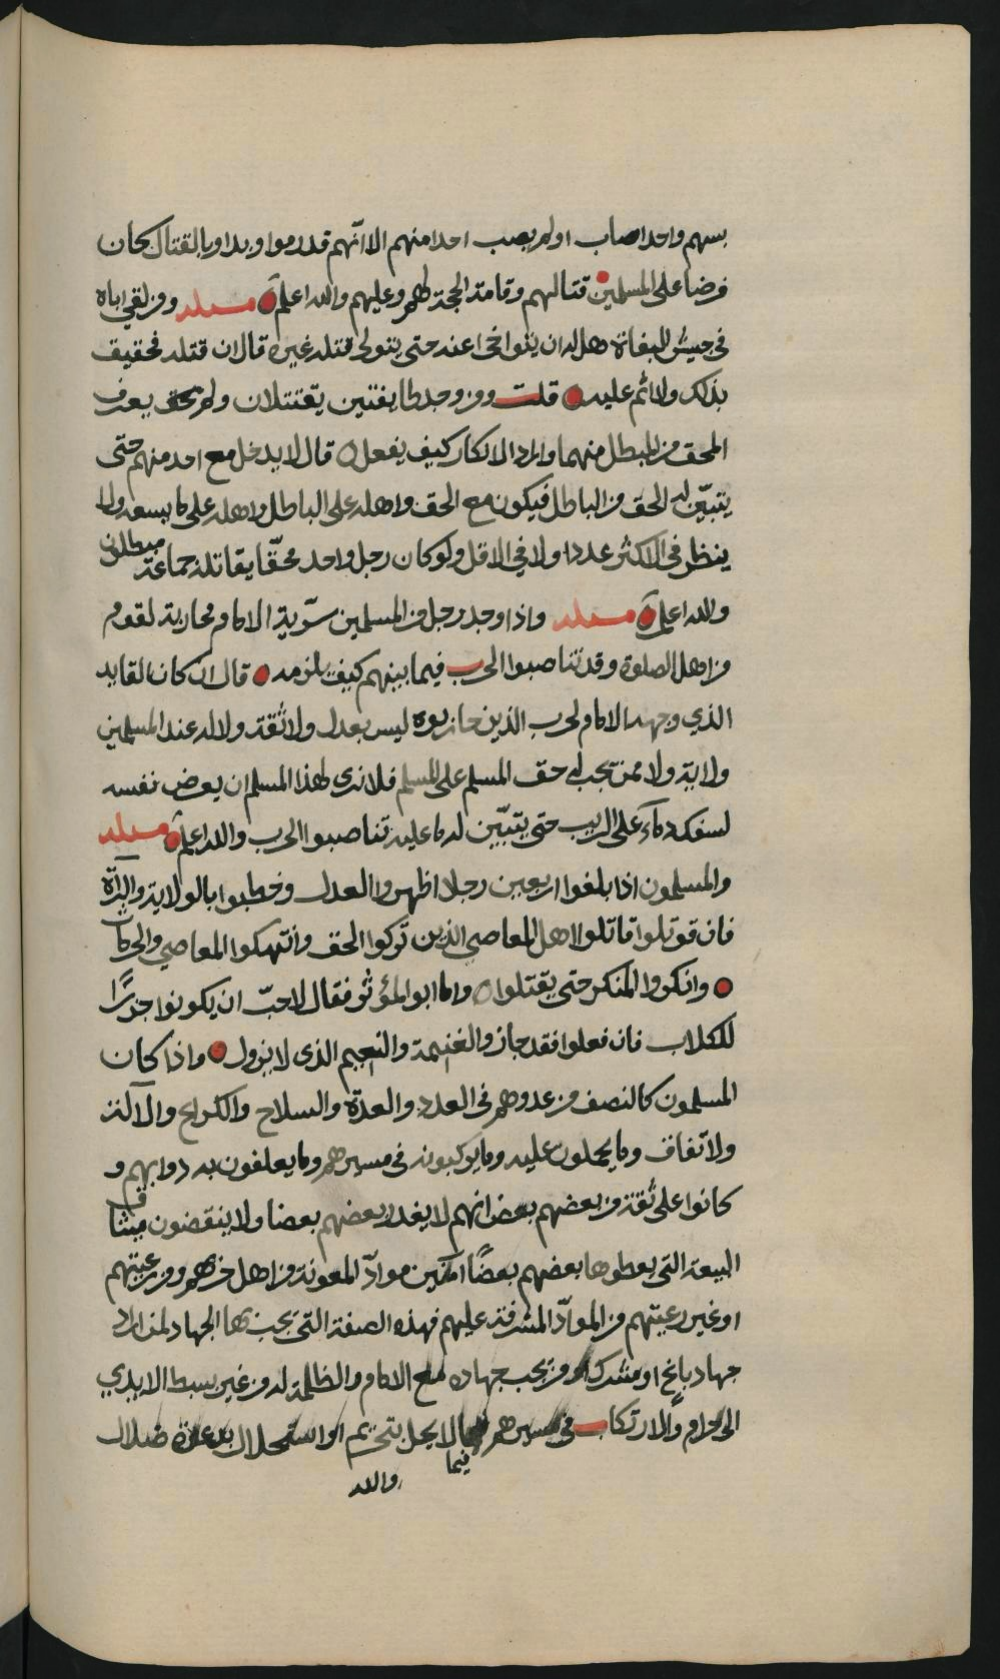 بسهم واحد اصاب اولم يصب احدا منهم الا انهم قد رموا وبداوا بالقتال كان
فرضا على المسلمين قتالهم وقامة الحجة لهم وعليهم والله اعلم مسئلة ومن لقي اباه
في جيش البغاة هل له ان يتواخى عنه حتى يتولى قتله غيره قال ان قتله فحقيق
بذلك ولا اثم عليه قلت ومن وجد طايفتين يقتتلان ولم يعرف
المحق من المبطل منهما واراد الانكار كيف يفعل قال لا يدخل مع احد منهم حتى
يتبيّن له الحق من الباطل فيكون مع الحق واهله على الباطل واهله على ما يسعه ولا
ينظر في الاكثر عددا ولا في الاقل ولو كان رجل واحد محقّا يقاتله جماعة مبطلون
والله اعلم مسئلة واذا وجد رجل من المسلمين سرّية الامام محاربة لقوم
من اهل الصلوة وقد تناصبوا الحرب فيما بينهم كيف يلزمه قال ان كان القايد
الذي وجهه الامام لحرب الذين حاربوه ليس بعدل ولا ثقة ولا له عند المسلمين
ولاية ولا ممن يجب له حق المسلم على المسلم فلا نرى لهذا المسلم ان يعرض نفسه
لسفك دماء على الريب حتى يتبيّن له ما عليه تناصبوا الحرب والله اعلم مسئلة
والمسلمون اذا بلغوا اربعين رجلا اظهروا العدل وخطبوا بالولاية والبرآة
فان قوتلوا قاتلوا اهل المعاصي الذين تركوا الحق وانتهكوا المعاصي والحرمات
وانكروا المنكر حتى يقتلوا واما ابو المؤثر فقال لا احبّ ان يكونوا جزرًا
للكلاب فان فعلوا فقد جاز والغنيمة والنعيم الذي لا يزول واذا كان
المسلمون كالنصف من عدوهم في العدد والعدّة والسلاح والكراع والآلة
ولا نفاق وما يحملون عليه وما يركبونه في مسيرهم وما يعلفون به دوابهم و
كانوا على ثقة من بعضهم بعض انهم لا يغدر بعضهم بعضا ولا ينقضون ميثاق
البيعة التي يعطوها بعضهم بعضًا آمنين موادّ المعونة من اهل حربهم ومن رعيتهم
او غير رعيتهم من الموادّ المشرفة عليهم فهذه الصفة التي يجب بها الجهاد لمن اراد
جهاد باغ او مشرك او من يجب جهاده مع الامام والظلمة له من غير بسط الايدي
الى الحرام والارتكاب في مسيرهم فيما لا يحل بتحريم او استحلال بدعة ضلال
والله